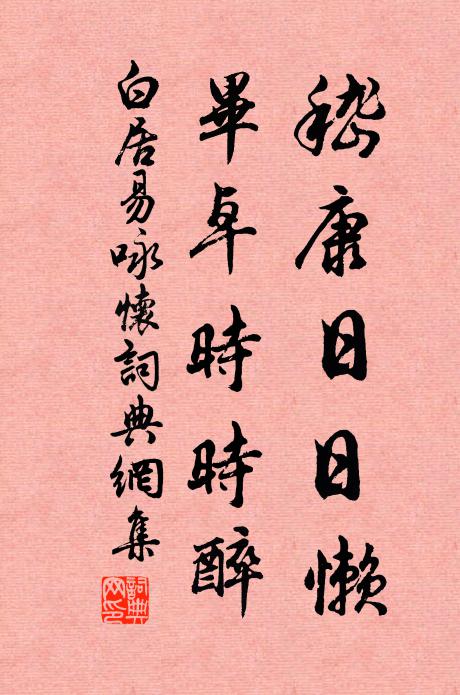 嵇康日日懶
畢卓時時醉
白居易咏懷詞典網集
詞典網印